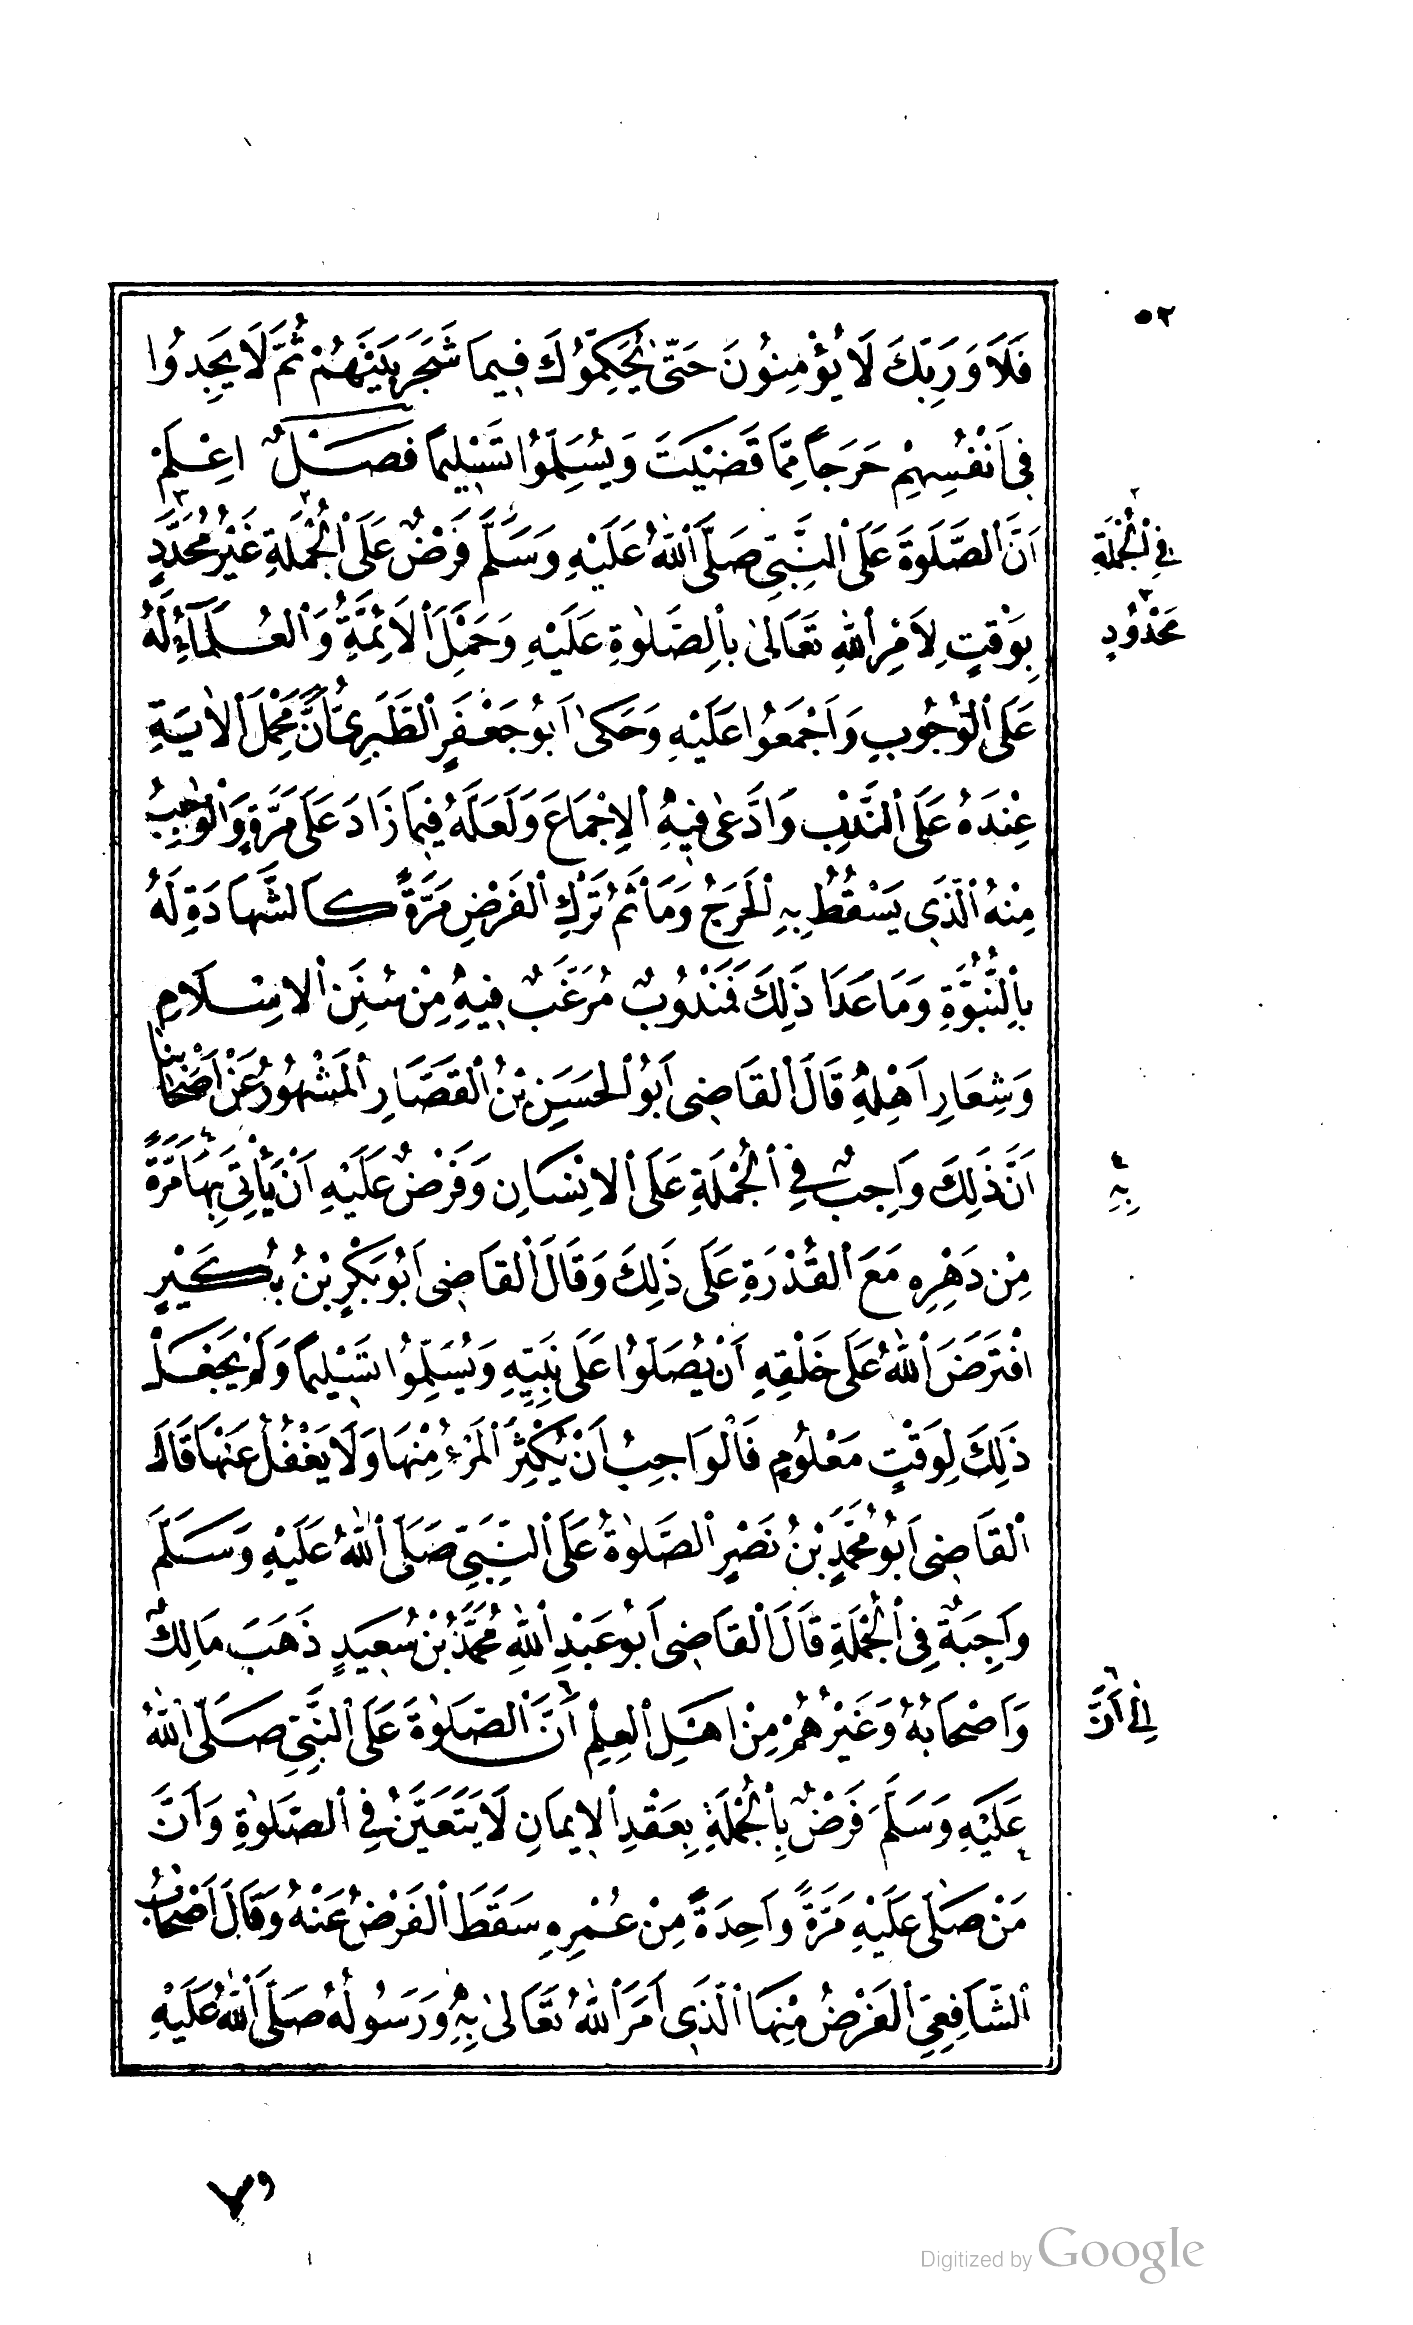 ٥٢
فَلَا وَرَبِّكَ لَا يُؤْمِنُونَ حَتّٰى يُحَكِّمُوكَ فِيمَا شَجَرَ بَيْنَهُمْ ثُمَّ لَا يَجِدُوا
فِى اَنْفُسِهِمْ حَرَجاً مِمَّا قَضَيْتَ وَيُسَلِّمُوا تَسْلِيماً فَصْلٌ اِعْلَمْ
اَنَّ الصَّلَوةَ عَلَى النَّبِىِّ صَلَّى اللّٰهُ عَلَيْهِ وَسَلَّمَ فَرْضٌ عَلَى الْجُمْلَةِ غَيْرُ مُحَدَّدٍ
بِوَقْتٍ لِاَمْرِ اللّٰهِ تَعَالٰى بِالصَّلٰوةِ عَلَيْهِ وَحَمْلِ الْاَئِمَّةِ وَالْعُلَمَآءِ لَهُ
عَلَى الْوُجُوبِ وَاَجْمَعُوا عَلَيْهِ وَحَكٰى اَبُو جَعْفَرٍ الطَّبَرِىُّ اَنَّ مَحْمِلَ الْاٰيَةِ
عِنْدَهُ عَلَى النَّدْبِ وَادَّعٰى فِيهِ الْاِجْمَاعَ وَلَعَلَّهُ فِيمَا زَادَ عَلَى مَرَّةٍ وَالْوَاجِبُ
مِنْهُ الَّذِى يَسْقُطُ بِهِ الْحَرَجُ وَمَأْثَمُ تَرْكِ الْفَرْضِ مَرَّةً كَالشَّهَادَةِ لَهُ
بِالنُّبُوَّةِ وَمَا عَدَا ذَلِكَ فَمَنْدُوبٌ مُرَغَّبٌ فِيهِ مِنْ سُنَنِ الْاِسْلَامِ
وَشِعَارِ اَهْلِهِ قَالَ الْقَاضِى اَبُو الْحَسَنِ بْنُ الْقَصَّارِ الْمَشْهُورُ عَنْ اَصْحَابِنَا
اَنَّ ذَلِكَ وَاجِبٌ فِى الْجُمْلَةِ عَلَى الْاِنْسَانِ وَفَرْضٌ عَلَيْهِ اَنْ يَأْتِىَ بِهَا مَرَّةً
مِنْ دَهْرِهِ مَعَ الْقُدْرَةِ عَلَى ذَلِكَ وَقَالَ الْقَاضِى اَبُو بَكْرِ بْنُ بُكَيْرٍ
افْتَرَضَ اللّٰهُ عَلَى خَلْقِهِ اَنْ يُصَلُّوا عَلَى نَبِيِّهِ وَيُسَلِّمُوا تَسْلِيماً وَلَمْ يَجْعَلْ
ذَلِكَ لِوَقْتٍ مَعْلُومٍ فَالْوَاجِبُ اَنْ يُكْثِرَ الْمَرْءُ مِنْهَا وَلَا يَغْفُلَ عَنْهَا قَالَ
الْقَاضِى اَبُو مُحَمَّدِ بْنُ نَصْرٍ الصَّلٰوةُ عَلَى النَّبِىِّ صَلَّى اللّٰهُ عَلَيْهِ وَسَلَّمَ
وَاجِبَةٌ فِى الْجُمْلَةِ قَالَ الْقَاضِى اَبُو عَبْدِ اللّٰهِ مُحَمَّدُ بْنُ سَعِيدٍ ذَهَبَ مَالِكٌ
وَاَصْحَابُهُ وَغَيْرُهُمْ مِنْ اَهْلِ الْعِلْمِ اَنَّ الصَّلٰوةَ عَلَى النَّبِىِّ صَلَّى اللّٰهُ
عَلَيْهِ وَسَلَّمَ فَرْضٌ بِالْجُمْلَةِ بِعَقْدِ الْاِيمَانِ لَا يَتَعَيَّنُ فِى الصَّلٰوةِ وَاَنَّ
مَنْ صَلَّى عَلَيْهِ مَرَّةً وَاحِدَةً مِنْ عُمْرِهِ سَقَطَ الْفَرْضُ عَنْهُ وَقَالَ اَصْحَابُ
الشَّافِعِىِّ الْفَرْضُ مِنْهَا الَّذِى اَمَرَ اللّٰهُ تَعَالٰى بِهِ وَرَسُولُهُ صَلَّى اللّٰهُ عَلَيْهِ
٢
فِى الْجُمْلَةِ
٣
مَحْدُودٍ
٤
بِهِ
٦
اِلٰى اَنَّ
Digitized by Google